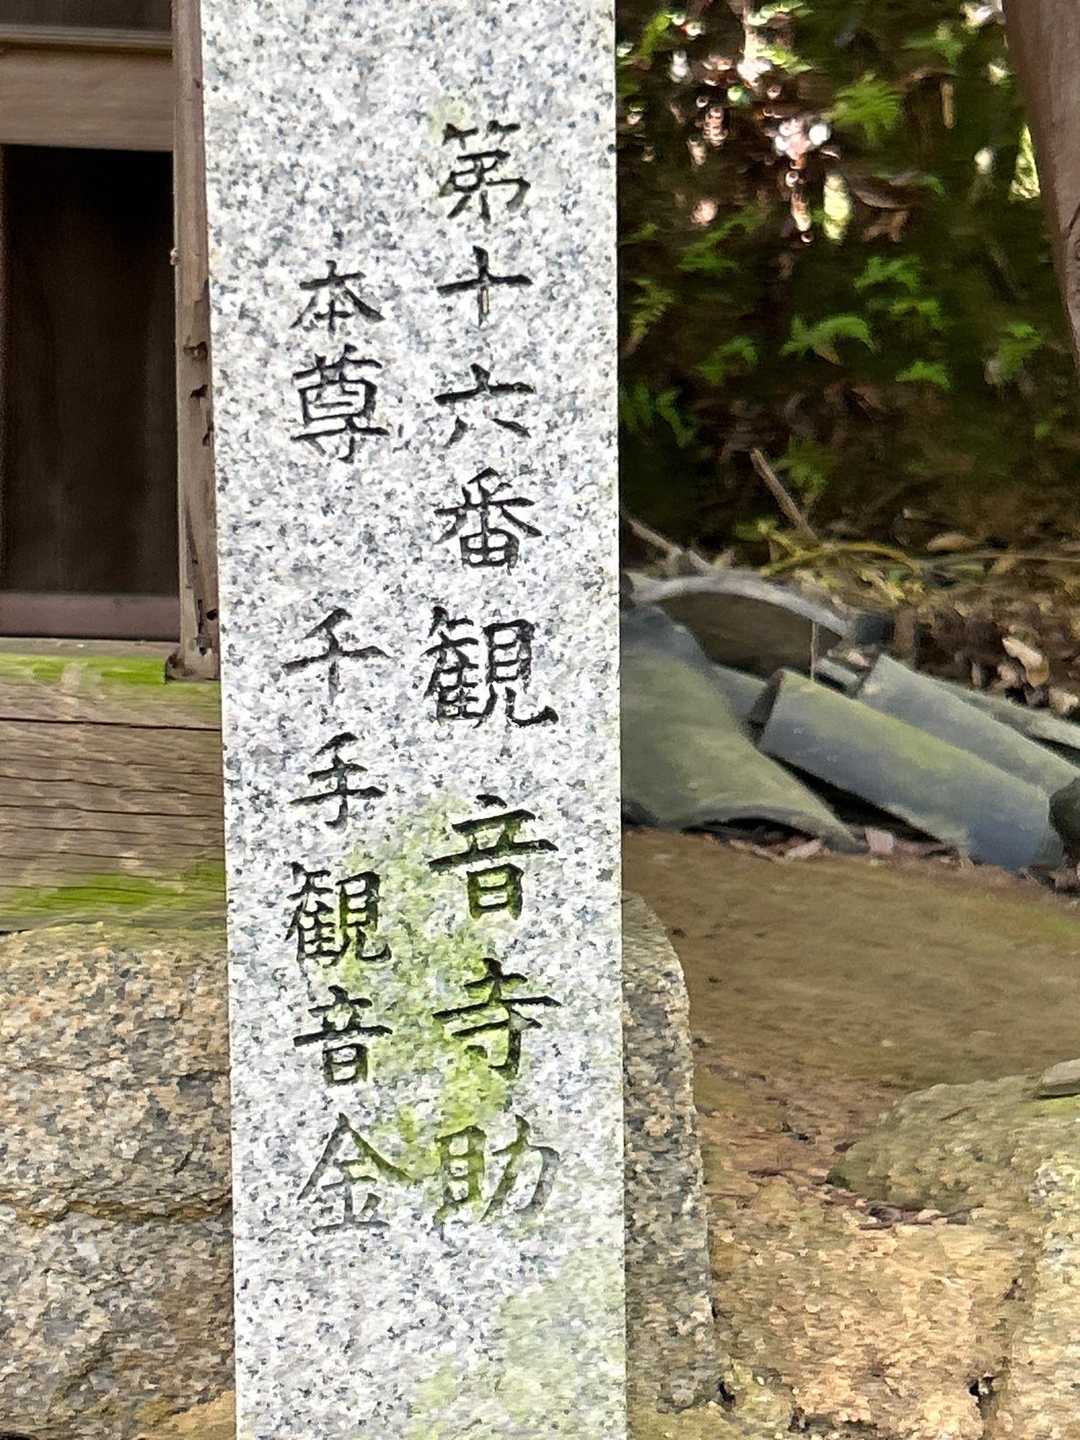 第十六番観音寺助
本尊 千手観音金